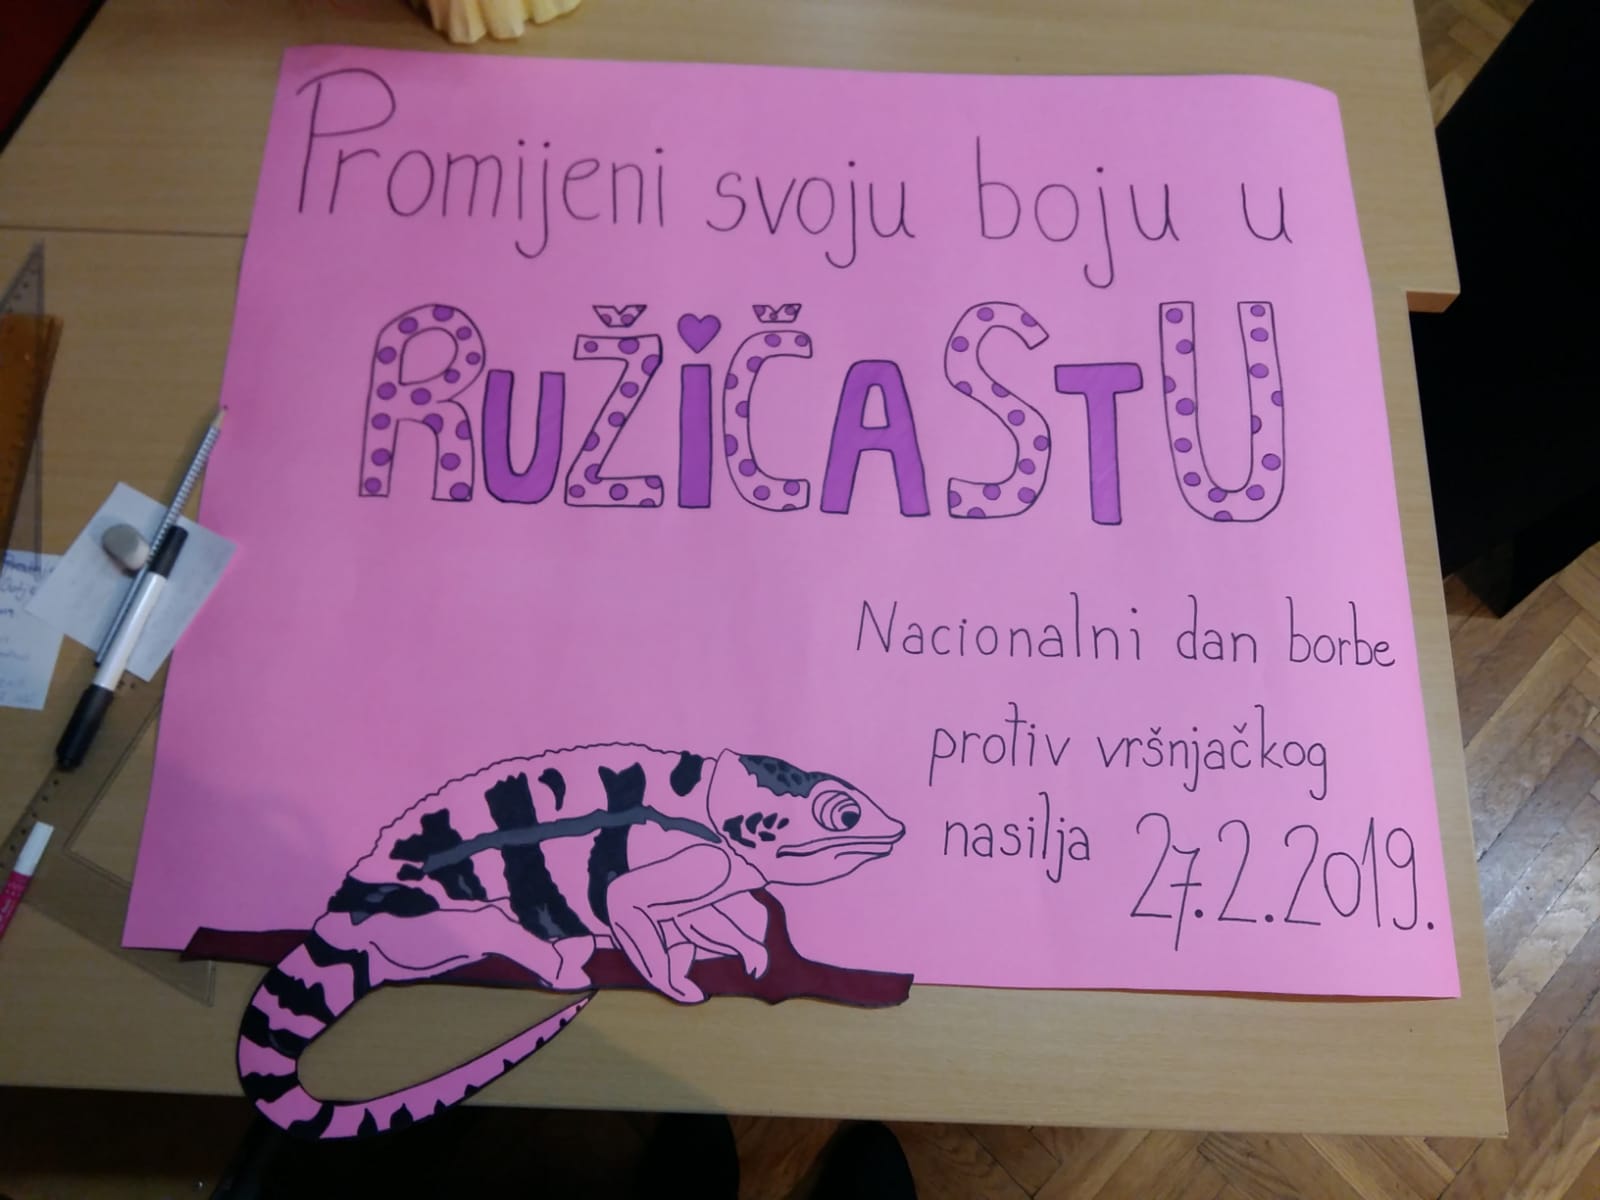 Promijeni svoju boju u
RuŽiČaStU
Nacionalni dan borbe
protiv vršnjačkog
nasilja 27.2.2019.